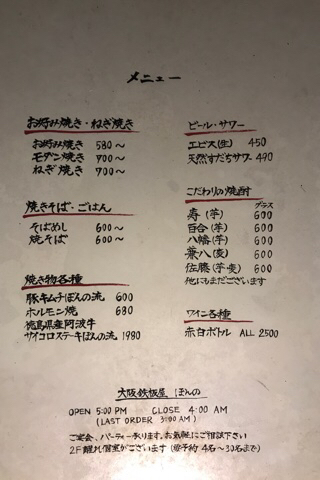 メニュー
お好み焼き・ねぎ焼き
お好み焼き 580〜
モダン焼き 700〜
ねぎ焼き 700〜
焼きそば・ごはん
そばめし 600〜
焼そば 600〜
焼き物各種
豚キムチぼんの流 600
ホルモン焼 680
徳島県産阿波牛
サイコロステーキぼんの流 1980
ビール・サワー
エビス(生) 450
天然すだちサワー 490
こだわりの焼酎
グラス
寿(芋) 600
百合(芋) 600
八幡(芋) 600
兼八(麦) 600
佐藤(芋・麦) 600
他にもまだございます
ワイン各種
赤白ボトル ALL 2500
大阪鉄板屋 ぼんの
OPEN 5:00 PM CLOSE 4:00 AM
(LAST ORDER 3:00 AM)
ご宴会、パーティー承ります。お気軽にご相談下さい
2F離れ個室がございます(要予約 4名〜30名まで)